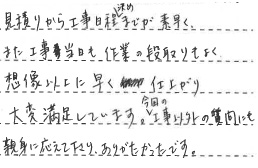 見積りから工事日程決めまでが素早く、
また工事当日も作業の段取りもよく
想像以上に早く仕上がり
大変満足しています。今回の工事以外の質問にも
親身に応えて下さり、ありがたかったです。